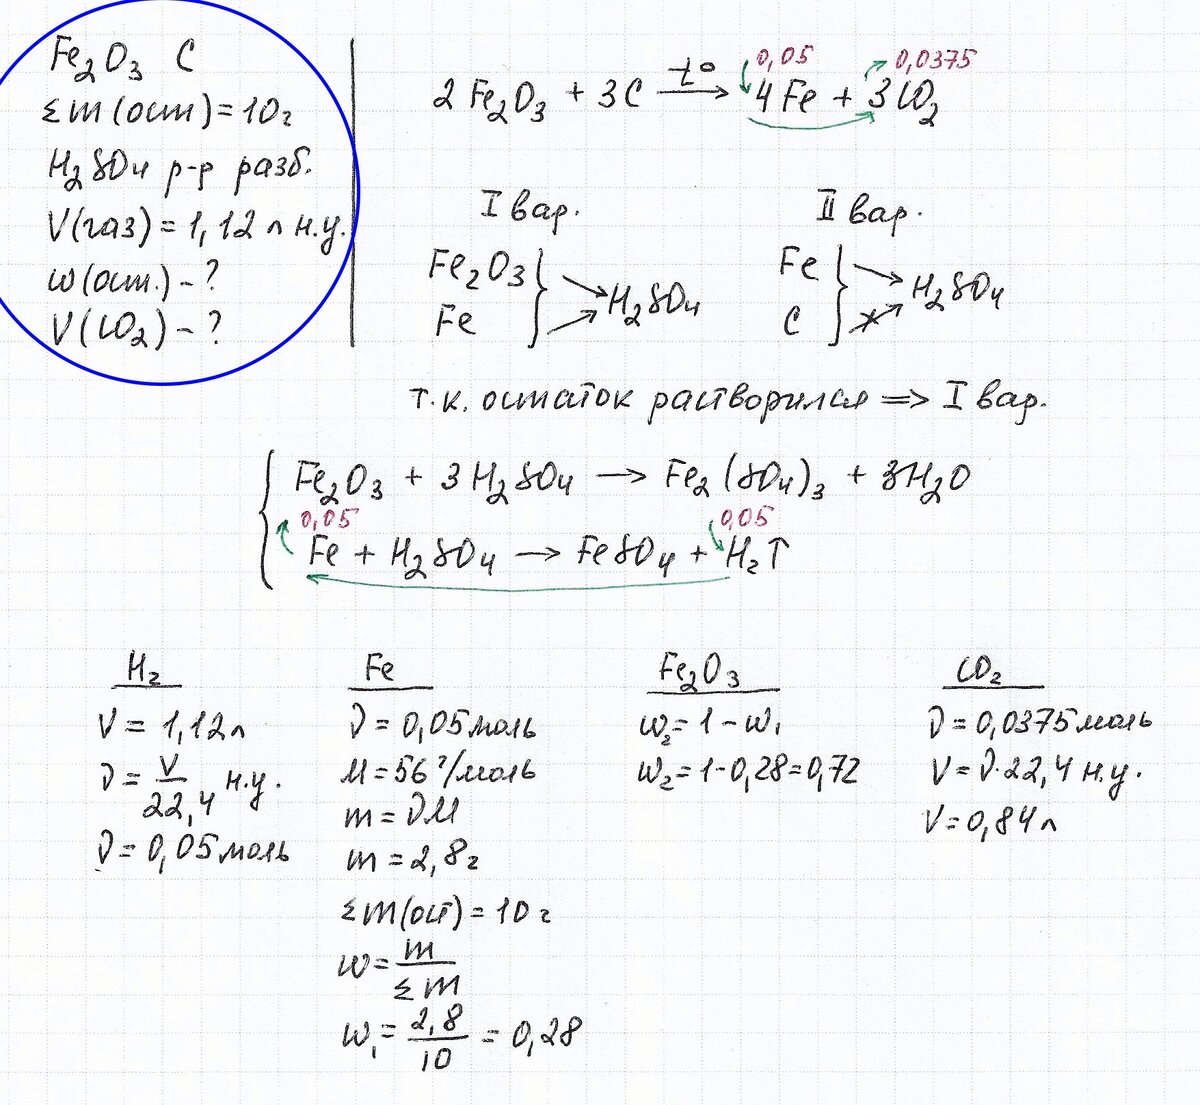 Fe₂O₃ C
Σm(ост)=10г
H₂SO₄ р-р разб.
V(газ)=1,12л н.у.
w(ост.)-?
V(CO₂)-?
0,05 0,0375
2Fe₂O₃ + 3C t° → 4Fe + 3CO₂
I вар.
Fe₂O₃
Fe
H₂SO₄
II вар.
Fe
C
H₂SO₄
т.к. остаток растворился => I вар.
Fe₂O₃ + 3H₂SO₄ → Fe₂(SO₄)₃ + 3H₂O
0,05 0,05
Fe + H₂SO₄ → FeSO₄ + H₂↑
H₂
V = 1,12л
ν = V/22,4 н.у.
ν=0,05моль
Fe
ν = 0,05моль
M=56г/моль
m=νM
m=2,8г
Σm(ост)=10г
w=m/Σm
w₁=2,8/10=0,28
Fe₂O₃
w₂=1-w₁
w₂=1-0,28=0,72
CO₂
ν=0,0375моль
V=ν·22,4 н.у.
V=0,84л